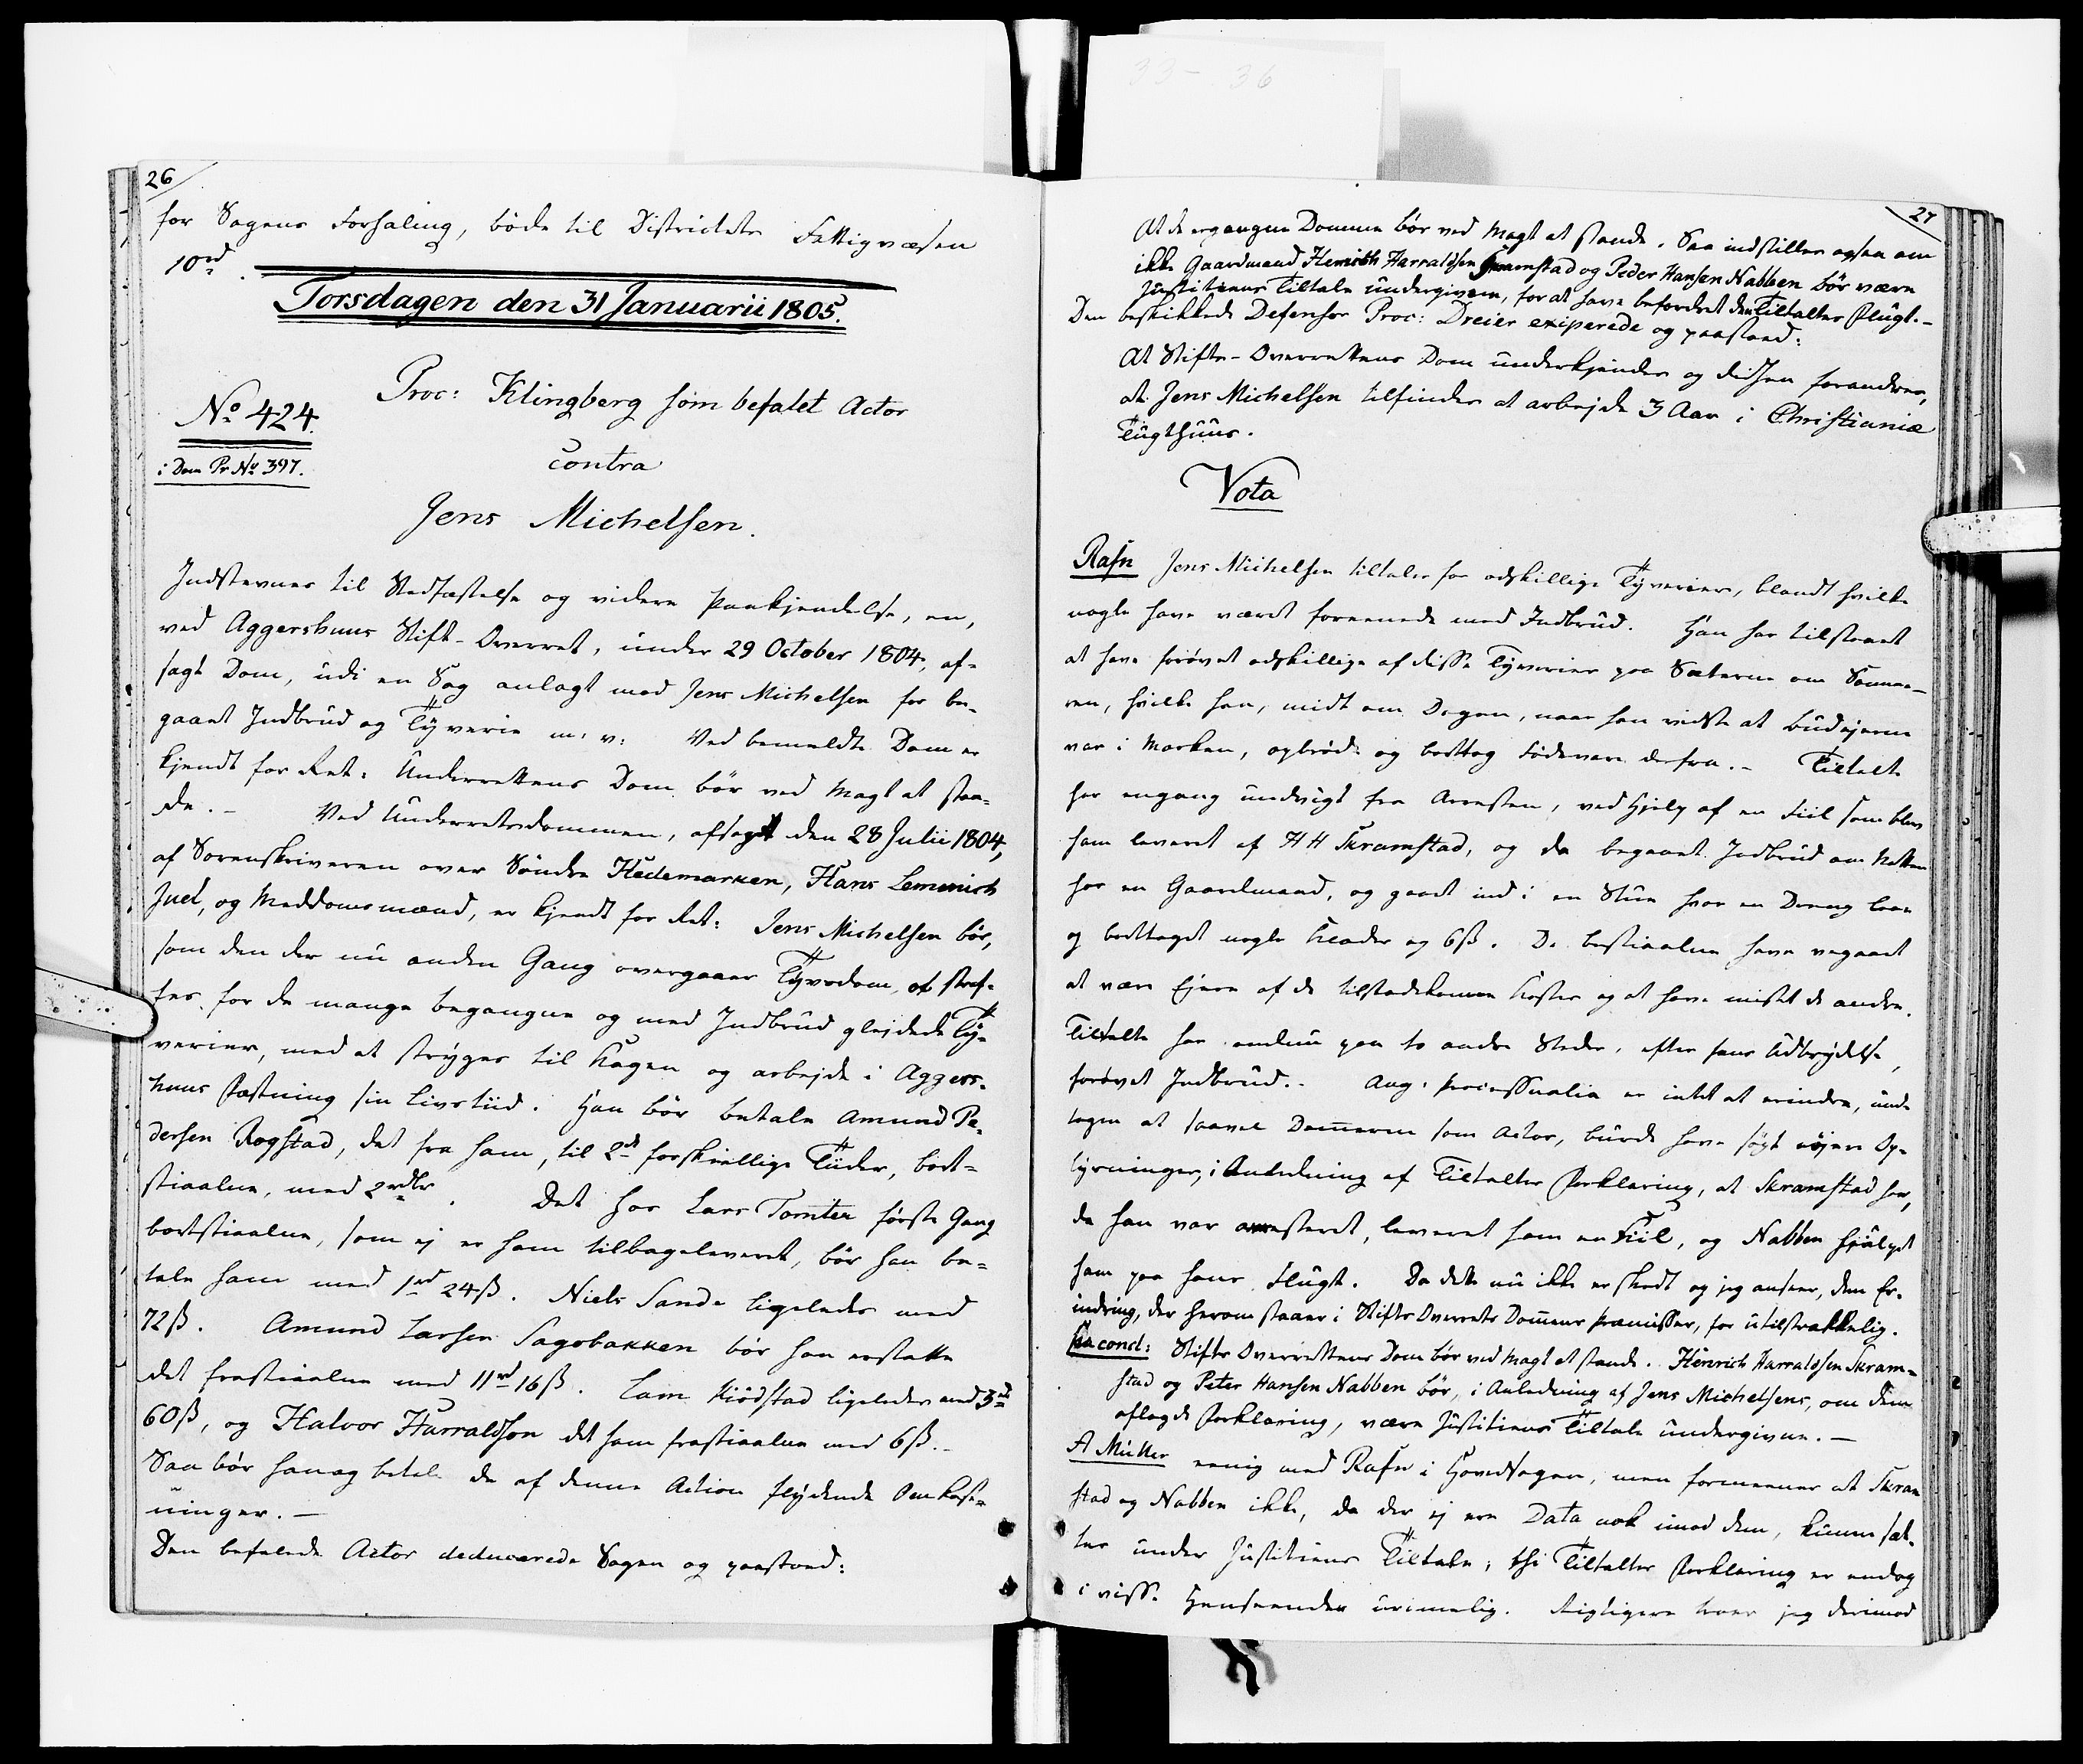 26
for Sagens Forhaling, bøde til Districtets Fattigvæsen
10rd.
Torsdagen den 31 Januarii 1805.
No 424.
i Dom Pr No 397.
Proc: Klingberg som befalet Actor
contra
Jens Michelsen.
Indstevnes til Stadfæstelse og videre Paakjendelse, en,
ved Aggershuus Stift-Overret, under 29 October 1804, af-
sagt Dom, udi en Sag anlagt mod Jens Michelsen for be-
gaaet Indbrud og Tyverie m: v: Ved bemeldte Dom er
kjendt for Ret: Underrettens Dom bør ved Magt at staa-
de. - Ved Underretsdommen, afsagt den 28 Julii 1804,
af Sorenskriveren over Søndre Hedemarken, Hans Lemmich
Juel, og Meddomsmænd, er kjendt for Ret: Jens Michelsen bør,
som den der nu anden Gang overgaaer Tyvsdom, at straf-
fes for de mange begangne og med Indbrud glejdede Ty-
verier, med at stryges til Kagen og arbejde i Aggers-
huus Fæstning sin Livstiid. Han bør betale Amund Pe-
dersen Rogstad, det fra ham, til 2de forskiellige Tiider, bort-
stiaalne, med 2rdlr. Det hos Lars Tomter første Gang
bortstiaalne, som ej er ham tilbageleveret, bør han be-
tale ham med 1rd 24ß. Niels Sande ligeledes med
72ß. Amund Larsen Sagobakken bør han erstatte
det frastiaalne med 11rd 16ß. Lars Kiødstad ligeledes med 3rd
60ß, og Halvor Harraldsøn det ham frastiaalne med 6ß. -
Saa bør han og betale de af denne Action flydende Omkost-
ninger. -
Den befalede Actor deducerede Sagen og paastod:
27
At de ergangne Domme bør ved Magt at stande. Saa indstilles ogsaa om
ikke Gaardmand Henrich Harraldsen Skramstad og Peder Hansen Nabben bør være
Justitiens Tiltale undergiven, for at have befordret den Tiltaltes Flugt. -
Den beskikkede Defensor Proc: Dreier exiperede og paastod:
At Stifts-Overrettens Dom underkjendes og didhen forandres,
at Jens Michelsen tilfindes at arbejde 3 Aar i Christianiæ
Tugthuus.
Vota
Rafn Jens Michelsen tiltales for adskillige Tyverier, blandt hvilke
nogle have været foreenede med Indbrud. Han har tilstaaet
at have forøvet adskillige af disse Tyverier paa Sæterne om Somme-
ren, hvilke han, midt om Dagen, naar han vidste at Budejerne
var i Marken, opbrød og borttog Fødevare derfra. - Tiltalte
har engang undvigt fra Arresten, ved Hjelp af en Fiil som blev
ham leveret af H H Skramstad, og da begaaet Indbrud om Natten
hos en Gaardmand, og gaaet ind i en Stue hvor en Dreng laae
og borttaget nogle Klæder og 6ß. De bestiaalne have vegaaet
at være Ejere af de tilstædekomne Koster og at have mistet de andre.
Tiltalte har endnu paa to andre Steder, efter hans Udbrydelse,
forøvet Indbrud. - Ang: Processualia er intet at erindre, und-
tagen at saavel Dommeren som Actor, burde have søgt nøjere Op-
lysninger, i Anledning af Tiltaltes Forklaring, at Skramstad har,
da han var arresteret, leveret ham en Fiil, og Nabben hjulpet
ham paa hans Flugt. Da dette nu ikke er skedt og jeg ansaaer, den Er-
indring, der herom staaer i Stifts Overrets Dommens Præmisser, for utilstrækkelig.
Ita concl: Stifts Overrettens Dom bør ved Magt at stande. Henrich Harraldsen Skram-
stad og Peter Hansen Nabben bør, i Anledning af Jens Michelsens, om dem
aflagde Forklaring, være Justitiens Tiltale undergivne. -
A Müller eenig med Rafn i Hovedsagen, men formeener at Skram
stad og Nabben ikke, da der ej ere Data nok imod dem, kunne sæt-
tes under Justitiens Tiltale; thi Tiltaltes Forklaring er endog
i visse Henseender urimelig. Rigtigere troer jeg derimod